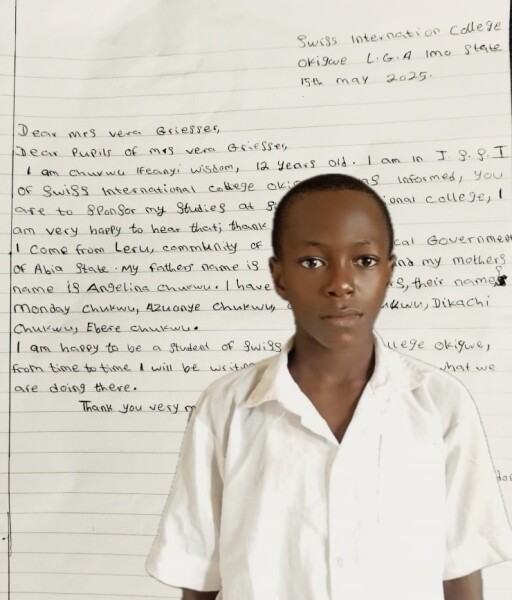 Swiss Internation College
Okigwe L.G.A Imo State
15th may 2025.
Dear mrs vera Griesser,
Dear Pupils of mrs vera Griesser,
I am chuwvu Ifeanyi wisdom, 12 years old. I am in J.S.S.I
of Swiss International college Informed, you
are to Sponsor my Studies at college, I
am very happy to hear that; thank
I come from Leru, community of Government
of Abia State. My fathers name is and my mothers
name is Angelina chukwu. I have their names
Monday chukwu, Azuonye chukwu, Dikachi
chukwu, Ebere chukwu.
I am happy to be a student of Swiss Okigwe,
from time to time I will be what we
are doing there.
Thank you very